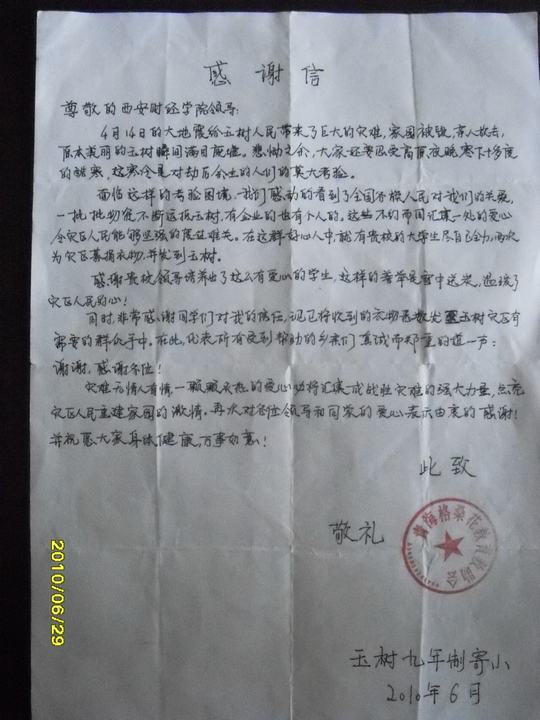 感谢信
尊敬的西安财经学院领导:
4月14日的大地震给玉树人民带来了巨大的灾难,家园被毁,亲人故去,
原本美丽的玉树瞬间满目疮痍。悲恸之余,大家还要忍受高原夜晚零下十多度
的酷寒,这寒冷是对劫后余生的人们的莫大考验。
面临这样的考验困境,我们感动的看到了全国各族人民对我们的关爱,
一批批物资不断运抵玉树,有企业的也有个人的。这些不约而同汇集一处的爱心
令灾区人民能够坚强的度过难关。在这群好心人中,就有贵校的大学生尽自己全力,两次
为灾区募捐衣物,并发到玉树。
感谢贵校领导培养出了这么有爱心的学生,这样的善举是雪中送炭,温暖了
灾区人民的心!
同时,非常感谢同学们对我的信任,现已将收到的衣物悉数发至玉树灾区有
需要的群众手中。在此,代表所有受到帮助的乡亲们真诚而郑重的道一声:
谢谢,感谢各位!
灾难无情人有情,一颗颗炙热的爱心功将汇集成战胜灾难的强大力量,点亮
灾区人民重建家园的激情。再次对各位领导和同学的爱心表示由衷的感谢!
并祝愿大家身体健康,万事如意!
此致
敬礼
青海格桑花教育救助会
玉树九年制寄小
2010年6月
2010/06/29